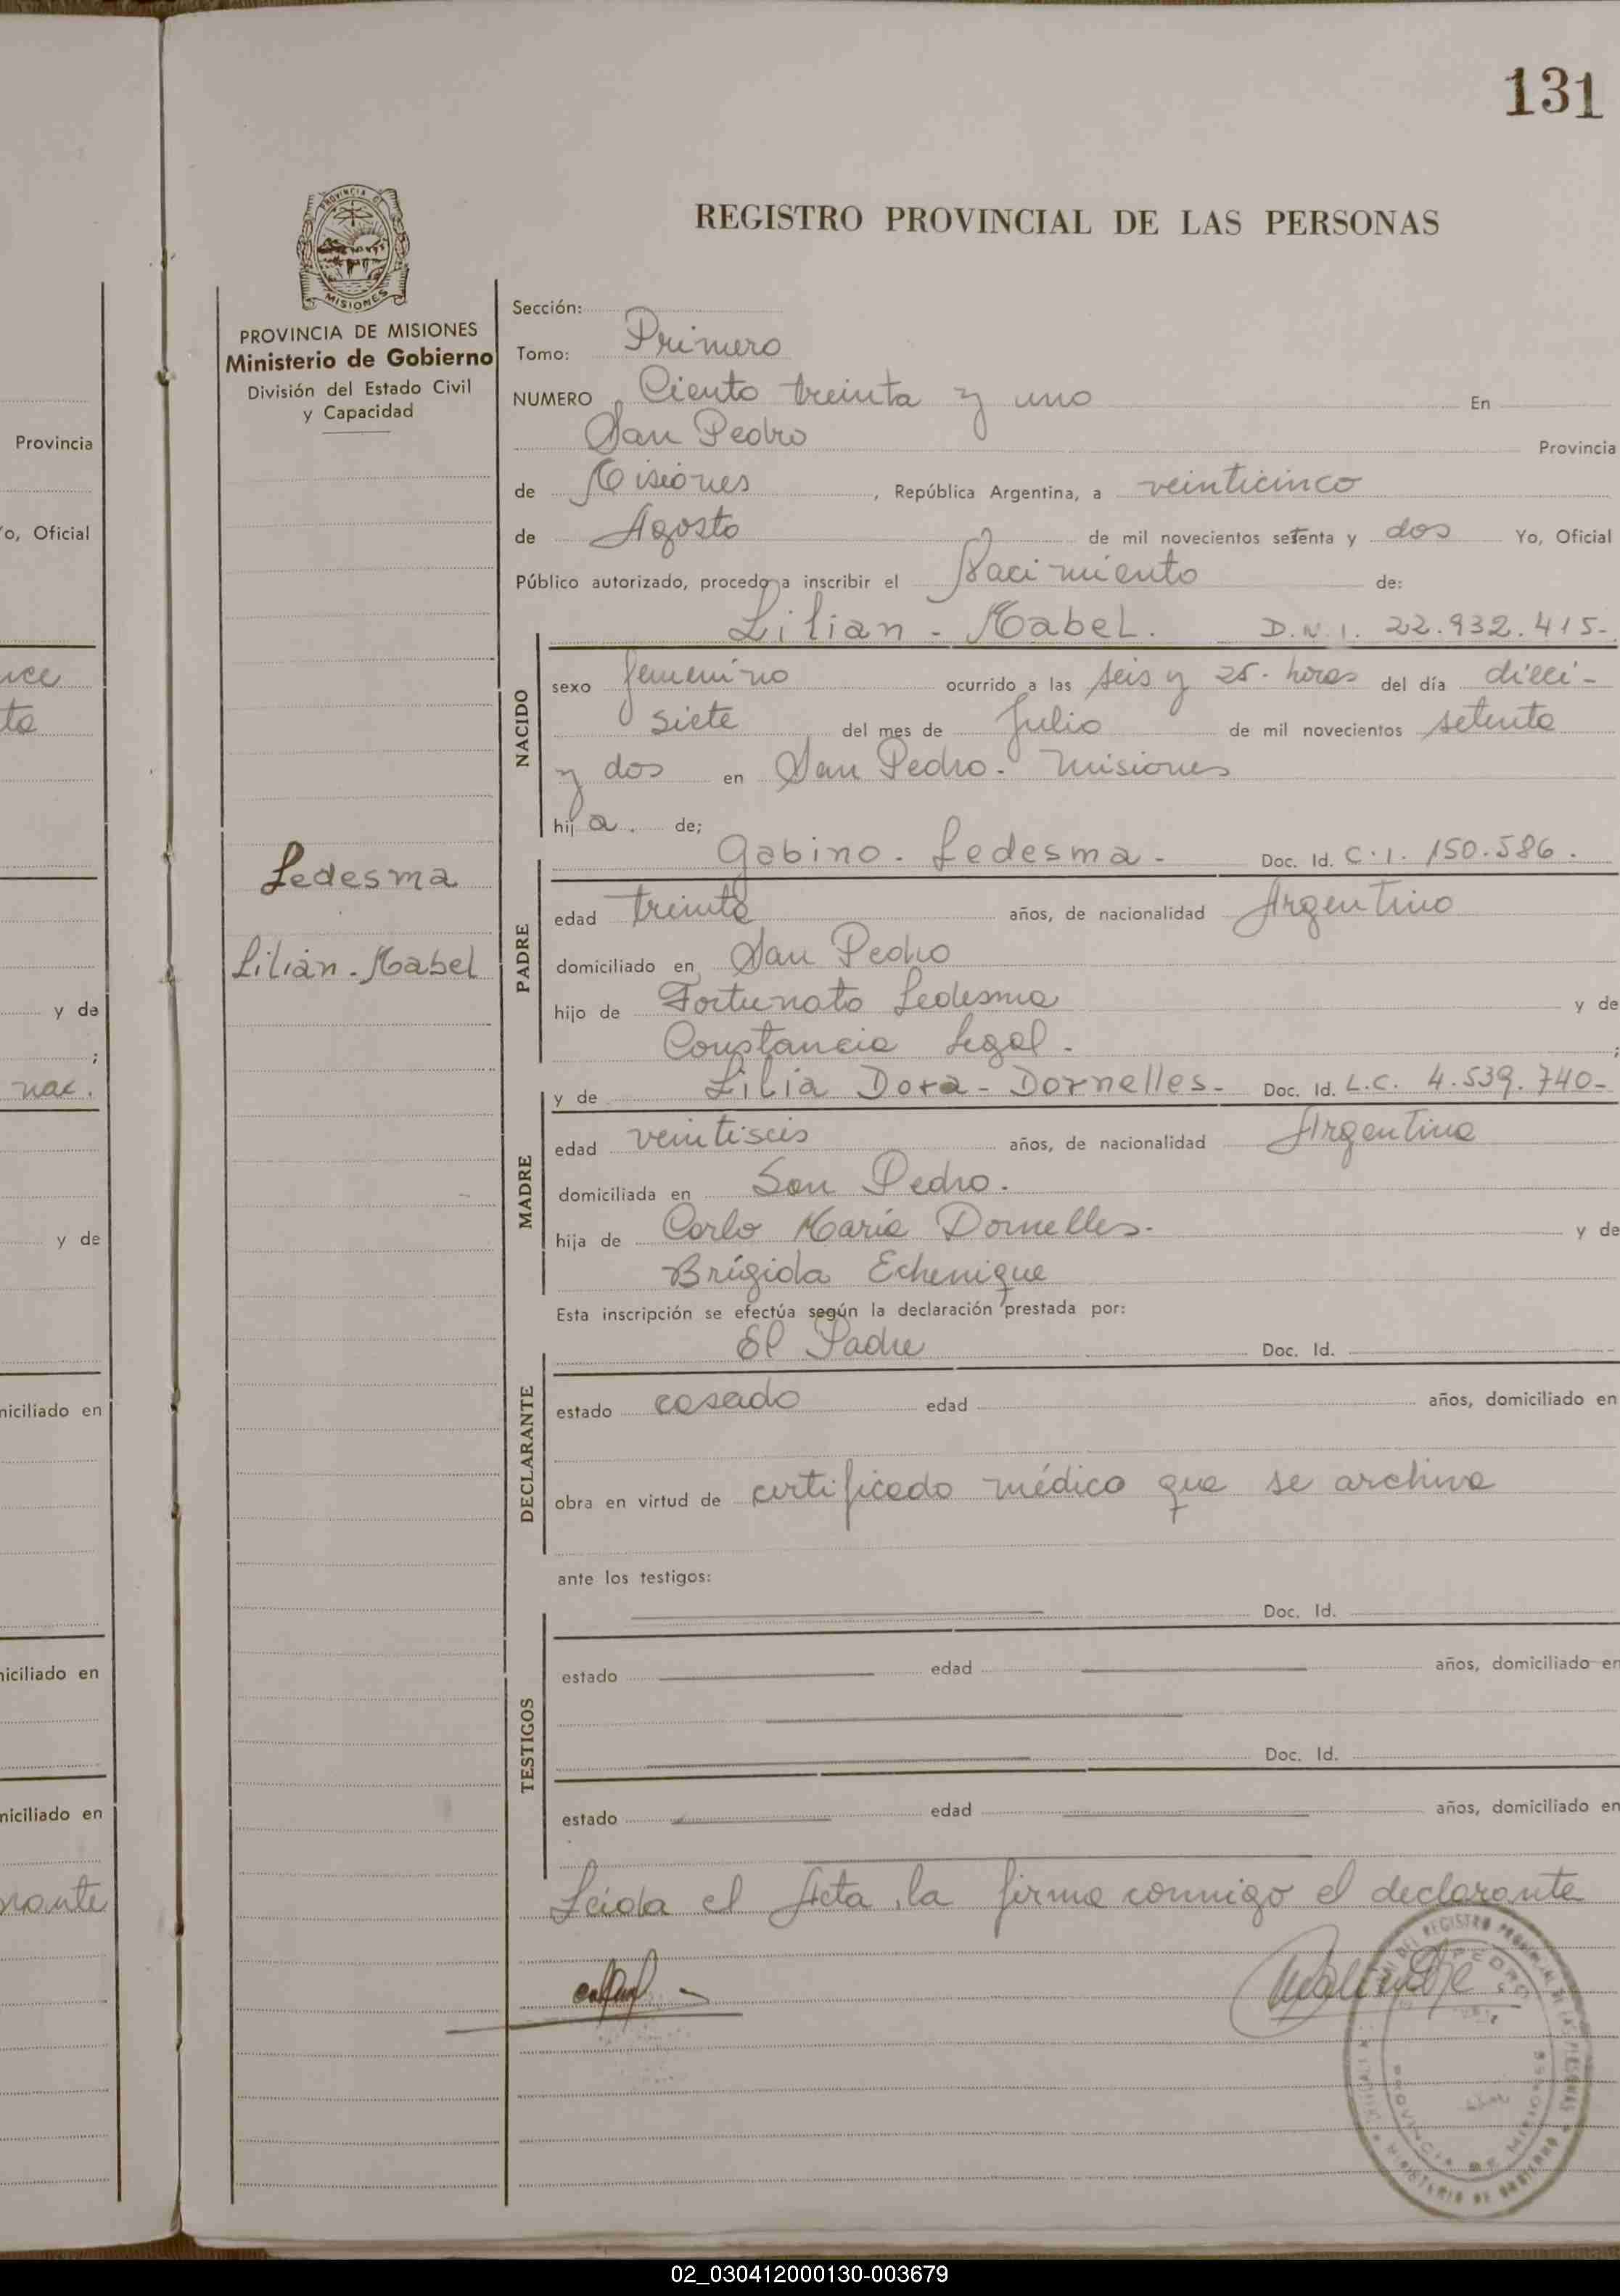 131
PROVINCIA DE
MISIONES
REGISTRO PROVINCIAL DE LAS PERSONAS
PROVINCIA DE MISIONES
Ministerio de Gobierno
División del Estado Civil
y Capacidad
Ledesma
Lilian - Mabel
Sección:
Tomo: Primero
NUMERO Ciento treinta y uno En
San Pedro Provincia
de Misiones, República Argentina, a veinticinco
de Agosto de mil novecientos setenta y dos Yo, Oficial
Público autorizado, procedo a inscribir el Nacimiento de:
Lilian - Mabel. D.N.I. 22.932.415-
NACIDO
sexo femenino ocurrido a las seis y 25. horas del día dieci-
siete del mes de Julio de mil novecientos setenta
y dos en San Pedro. Misiones
hija. de;
Gabino. Ledesma - Doc. Id. C.I. 150.586.
PADRE
edad treinta años, de nacionalidad Argentino
domiciliado en San Pedro
hijo de Fortunato Ledesma y de
Constancia Legal. ;
y de Lilia Dora - Dornelles - Doc. Id. L.C. 4.539.740-
MADRE
edad veintiseis años, de nacionalidad Argentina
domiciliada en San Pedro.
hija de Carlo María Dornelles. y de
Brígida Echenique
Esta inscripción se efectúa según la declaración prestada por:
El Padre Doc. Id.
DECLARANTE
estado casado edad años, domiciliado en
obra en virtud de certificado médico que se archiva
ante los testigos:
Doc. Id.
TESTIGOS
estado edad años, domiciliado en
Doc. Id.
estado edad años, domiciliado en
Leida el Acta, la firma conmigo el declarante
Provincia
Yo, Oficial
y de
;
nac.
y de
miciliado en
miciliado en
miciliado en
rante
02_030412000130-003679